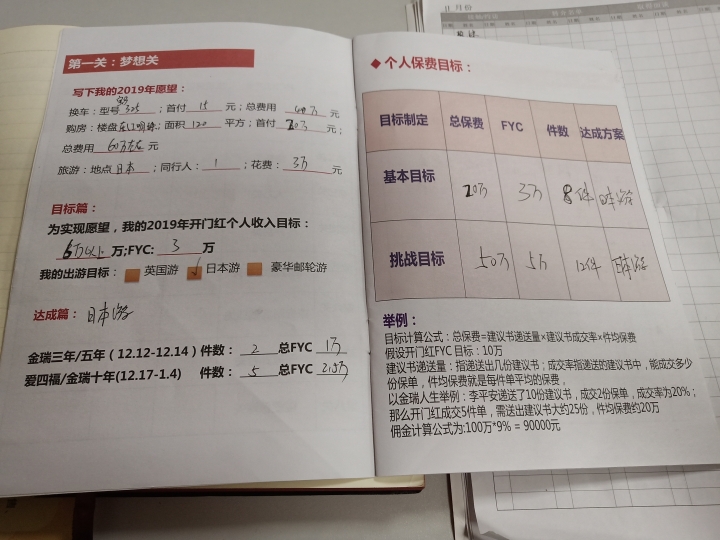 第一关：梦想关
写下我的2019年愿望：
换车：型号 宝马 325 ；首付 15 元；总费用 40万 元
购房：楼盘 ；面积 120 平方；首付 20万 元；
总费用 60万左右 元
旅游：地点 日本 ；同行人： 1 ；花费： 3万 元
目标篇：
为实现愿望，我的2019年开门红个人收入目标：
6万以上 万;FYC: 3 万
我的出游目标： 英国游 √ 日本游 豪华邮轮游
达成篇： 日本游
金瑞三年/五年（12.12-12.14）件数： 2 总FYC 1万
爱四福/金瑞十年(12.17-1.4) 件数： 5 总FYC 2.5万
◆ 个人保费目标：
目标制定 总保费 FYC 件数 达成方案
基本目标 20万 3万 8件 日本游
挑战目标 50万 5万 12件 日本游
举例：
目标计算公式：总保费=建议书递送量×建议书成交率×件均保费
假设开门红FYC 目标：10万
建议书递送量：指递送出几份建议书；成交率指递送的建议书中，能成交多少
份保单，件均保费就是每件单平均的保费，
以金瑞人生举例：李平安递送了10份建议书，成交2份保单，成交率为20%；
那么开门红成交5件单，需送出建议书大约25份，件均保费约20万
佣金计算公式为:100万*9% = 90000元
月份